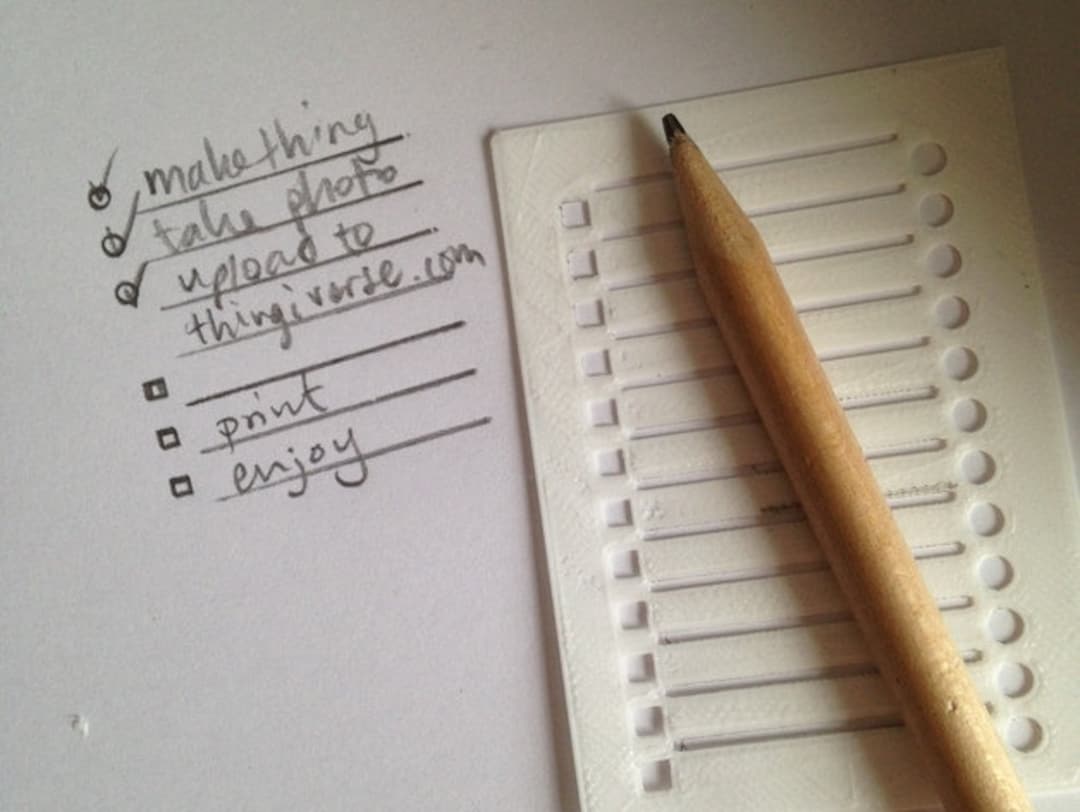 make thing
take photo
upload to
thingiverse.com
print
enjoy